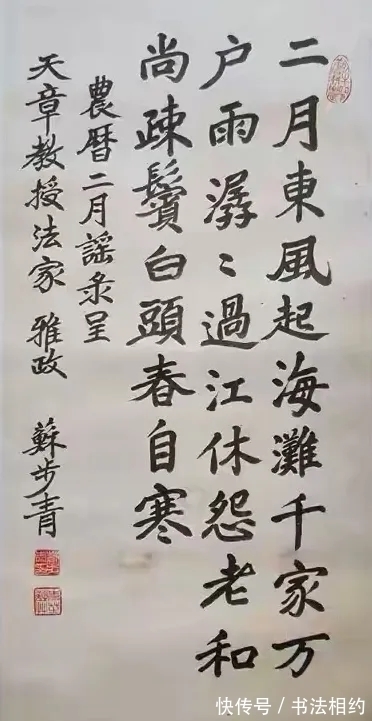 二月東風起海灘千家万
户雨潺〻過江休怨老和
尚疎鬢白頭春自寒
農曆二月謠录呈
天章教授法家雅政
蘇步青
快传号/书法相约